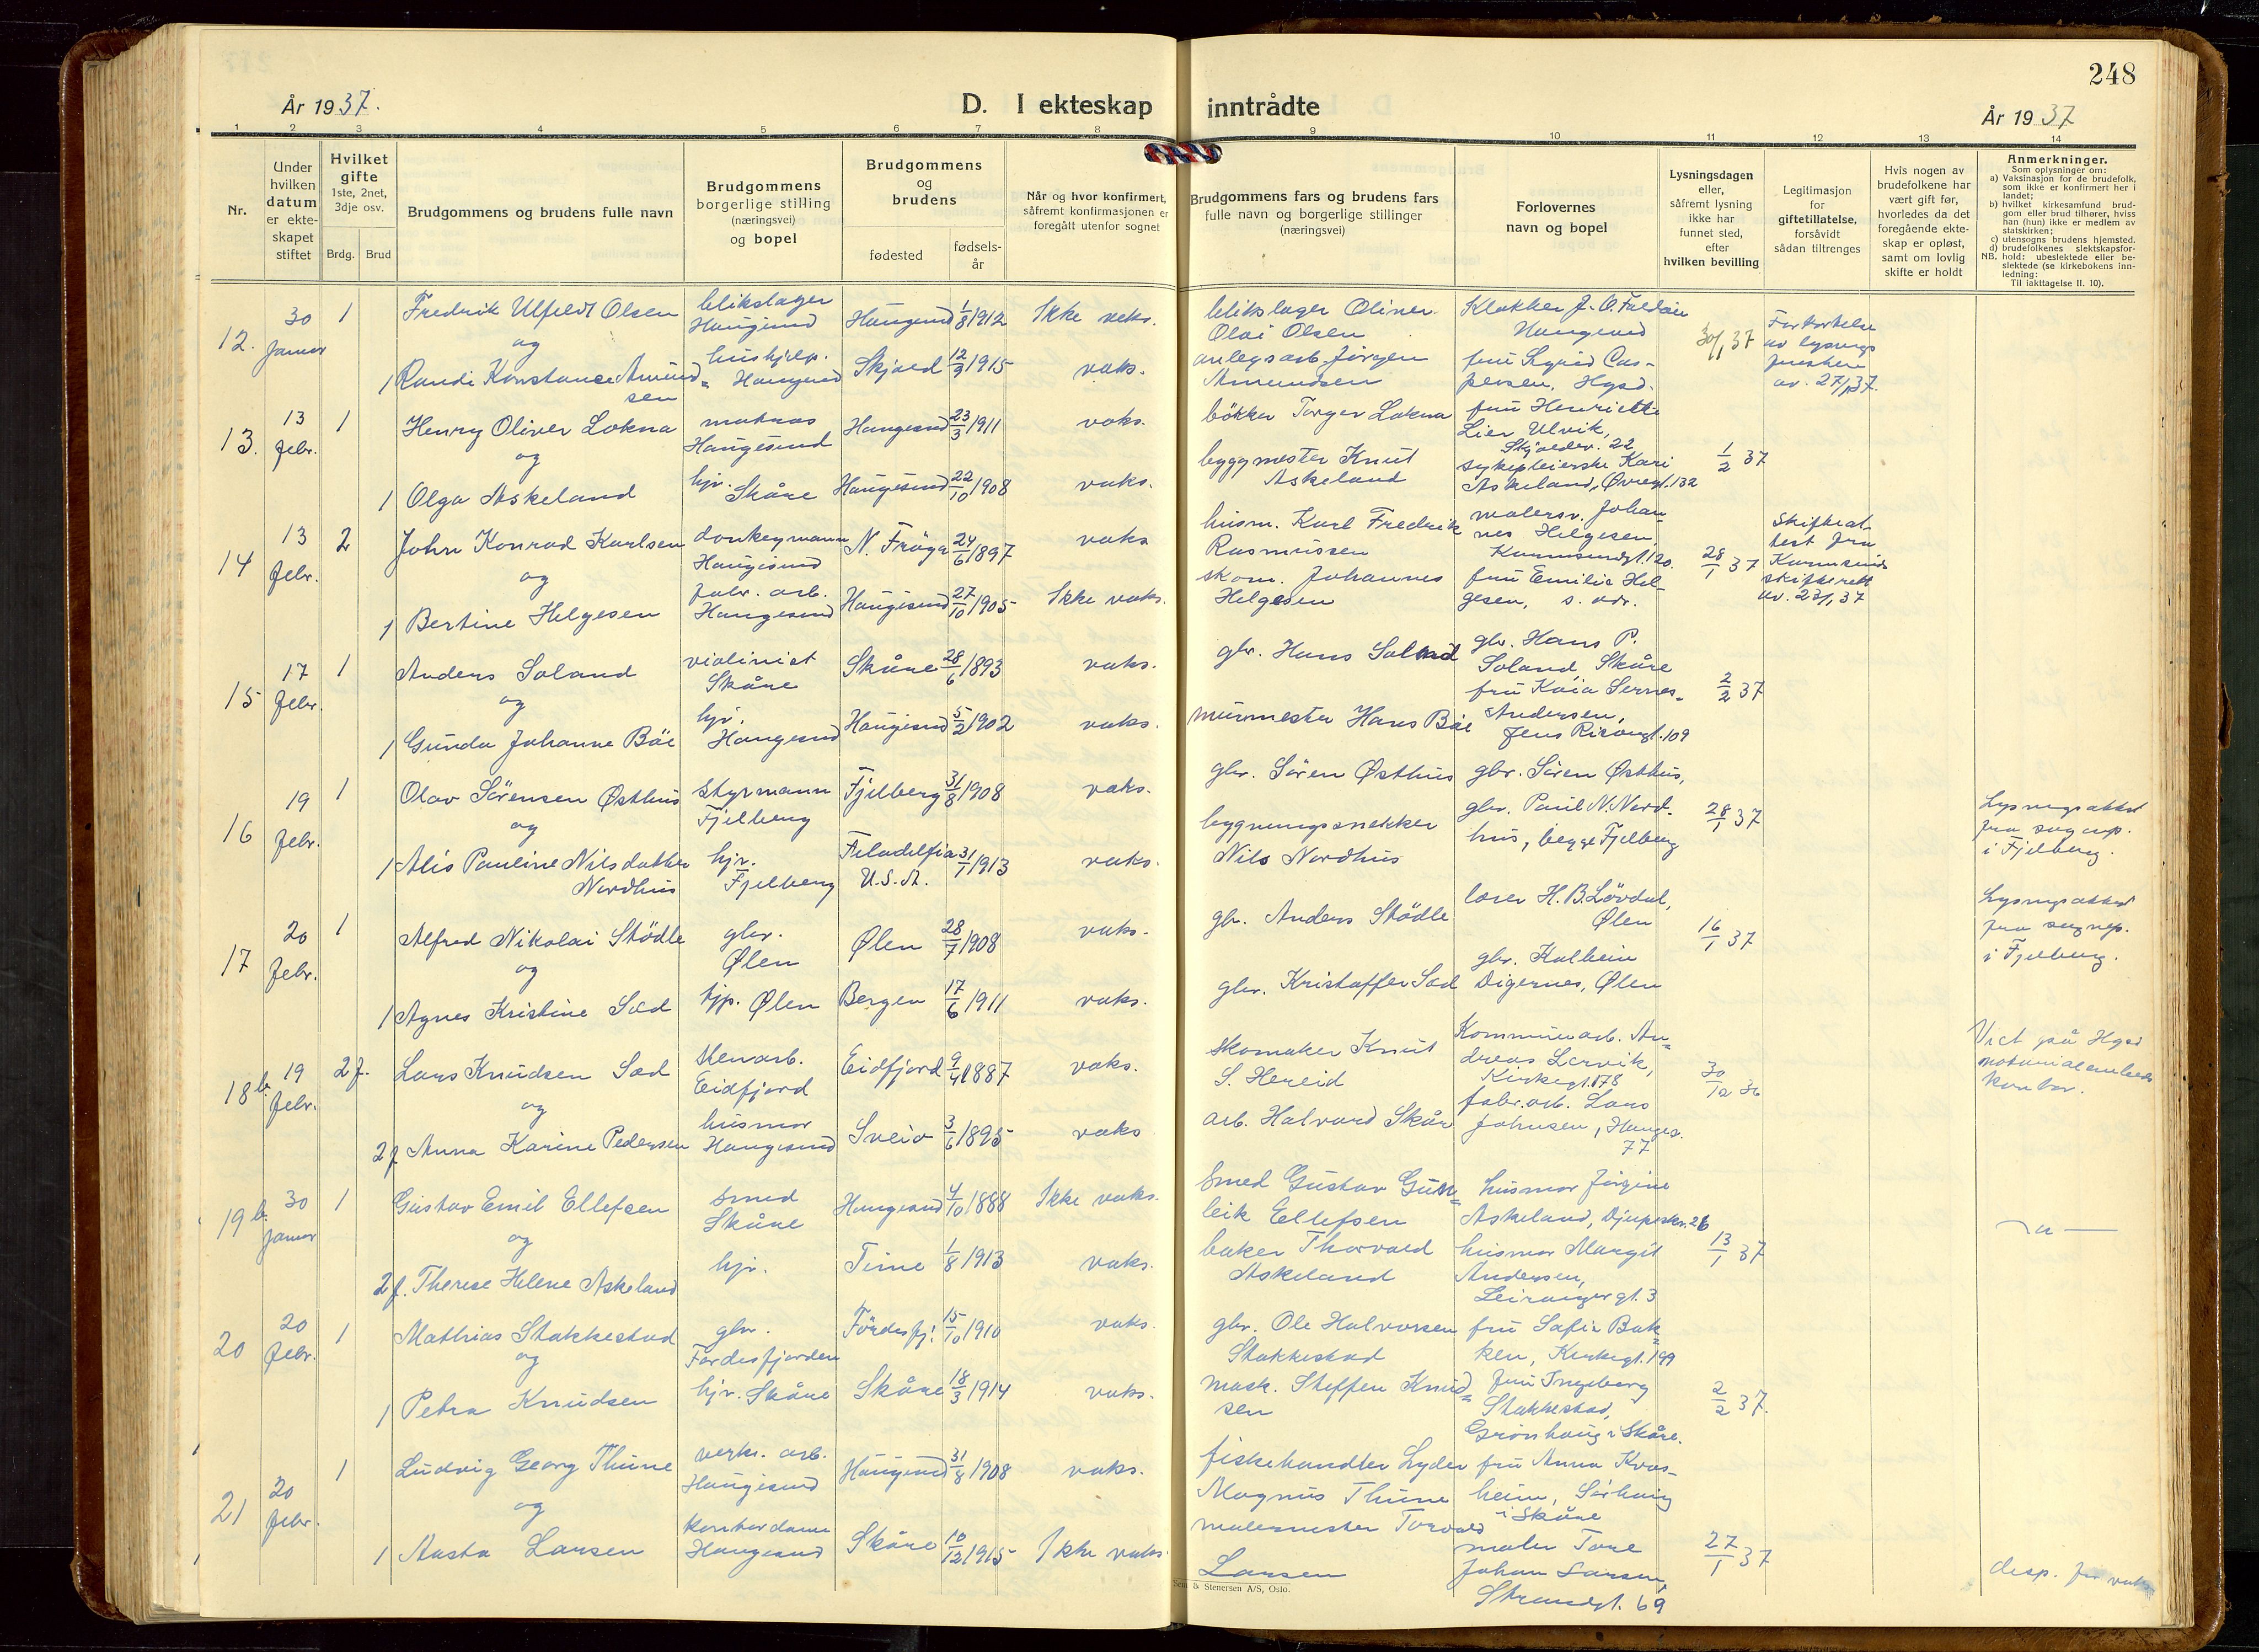 248
År 1937.
D. I ekteskap inntrådte
År 1937
1 2 3 4 5 6 7 8 9 10 11 12 13 14
Nr.
Under hvilken datum er ekteskapet stiftet
Hvilket gifte
1ste, 2net, 3dje osv.
Brdg. Brud
Brudgommens og brudens fulle navn
Brudgommens borgerlige stilling (næringsvei) og bopel
Brudgommens og brudens
fødested
fødsels-år
Når og hvor konfirmert, såfremt konfirmasjonen er foregått utenfor sognet
Brudgommens fars og brudens fars fulle navn og borgerlige stillinger (næringsvei)
Forlovernes navn og bopel
Lysningsdagen eller, såfremt lysning ikke har funnet sted, efter hvilken bevilling
Legitimasjon for giftetillatelse, forsåvidt sådan tiltrenges
Hvis nogen av brudefolkene har vært gift før, hvorledes da det foregående ekteskap er opløst, samt om lovlig skifte er holdt
Anmerkninger.
Som oplysning om:
a) Vaksinasjon for de brudefolk, som ikke er konfirmert her i landet;
b) hvilket kirkesamfund brudgom eller brud tilhører, hviss han (hun) ikke er medlem av statskirken;
c) utensogns brudens hjemsted.
d) brudefolkenes slektskapsforhold: ubeslektede eller beslektede (se kirkebokens innledning:
NB.
Til iakttagelse II. 10).
12. 30 Januar 1 Fredrik Ulfeldt Olsen blikslager Haugesund Haugesund 1/8 1912 Ikke vaks. blikslager Oliver Olai Olsen Klokker J. O. Haugesund 30/1 37
og
1 Randi Konstanse Amundsen hushjelp. Haugesund Skjold 12/3 1915 vaks. anlegsarb. Jörgen Amundsen fru Sigrid Caspersen, Hgsd. av lysnings av. 27/1 37.
13. 13 Febr. 1 Henry Oliver Lokna matros Haugesund Haugesund 23/3 1911 vaks. bökker Torger Lokna fru Henriette Lier Ulvik, Skjoldav. 22 1/2 37
og
1 Olga Askeland hjv. Skåre Haugesund 22/10 1908 vaks. byggmester Knut Askeland sykepleierske Kari Askeland, Övregt. 132
14 13 Febr. 2 John Konrad Karlsen donkeymann Haugesund N. Fröya 24/6 1897 vaks husm. Karl Fredrik Rasmussen malersv. Johannes Helgesen, Karmsundgt. 120. 28/1 37 Skifteattest fra Karmsund skifterett av. 23/1 37
og
1 Bertine Helgesen fabr. arb. Haugesund Haugesund 27/10 1905 Ikke vaks. skom. Johannes Helgesen fru Emilie Helgesen, s. adr.
15 17 Febr. 1 Anders Soland violinist Skåre Skåre 28/6 1893 vaks. gbr. Hans Soland gbr. Hans P. Soland, Skåre 2/2 37
og
1 Gunda Johanne Böe hjv. Haugesund Haugesund 5/2 1902 vaks. murmester Hans Böe fru Kaia Andersen, Jens Risöngt. 109
16 19 Febr. 1 Olav Sörensen Østhus styrmann Fjelberg Fjelberg 31/8 1908 vaks. gbr. Sören Østhus gbr. Sören Østhus, 28/1 37 Lysningsattest fra sogнep. i Fjelberg.
og
1 Alis Pauline Nilsdatter Nordhus hjv. Fjelberg Filadelfia U.S.A. 31/1 1913 vaks. bygningssnekker Nils Nordhus gbr. Paul N. Nordhus, begge Fjelberg
17 20 Febr. 1 Alfred Nikolai Stödle gbr. Ølen Ølen 28/7 1908 vaks. gbr. Anders Stödle lærer H. B. Lövdal, Ølen 16/1 37 Lysningsattest fra sognep. i Fjelberg.
og
1 Agnes Kristine Sæd hjp. Ølen Bergen 17/6 1911 vaks. gbr. Kristoffer Sæd gbr. Kolbein Digernes, Ølen
18 b. 19 Febr. 2 f. Lars Knudsen Sæd stenarb. Eidfjord Eidfjord 9/4 1887 vaks. skomaker Knut S. Hereid Kommunearb. Andreas Lervik, Kirkegt. 178 30/12 36 Viet på Hgsd notarialembeds kontor.
og
2 f Anna Karine Pedersen husmor Haugesund Sveio 3/6 1895 vaks arb. Halvard Skår fabr.arb. Lars Johnsen, Hauges. 77
19 b. 30 Januar 1 Gustav Emil Ellefsen smed Skåre Haugesund 4/10 1888 Ikke vaks. Smed Gustav Gunleik Ellefsen husmor Jörgine Askeland, Djupaskr. 26 13/1 37 — " —
og
2 f. Therese Helene Askeland hjv. Time 1/8 1913 vaks. baker Thorvald Askeland husmor Margit Andersen, Leirangergt. 3
20 20 Febr. 1 Mathias Stakkestad gbr. Førdesfjorden Fördesfj. 15/10 1910 vaks. gbr. Ole Halvorsen Stakkestad fru Safie Bakken, Kirkegt. 199 2/2 37.
og
1 Petra Knudsen hjv. Skåre Skåre 18/3 1914 vaks. mask. Steffen Knudsen fru Ingeborg Stakkestad, Grönhaug i Skåre.
21 20 Febr. 1 Ludvig Georg Thune verks. arb. Haugesund Haugesund 31/8 1908 vaks. fiskehandler Lyder Magnus Thune fru Anna Kvasheim, Sörhaug i Skåre 27/1 37
og
1 Aasta Larsen kontordame Haugesund Skåre 10/12 1915 Ikke vaks. malermester Torvald Larsen maler Tore Johan Larsen, Strandgt. 69 desp. for vaks
& Stenersen A/S, Oslo.